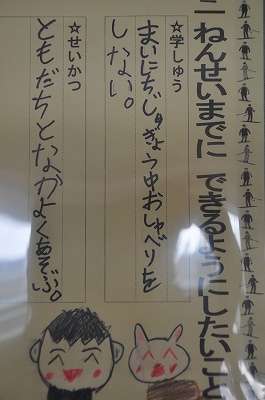 二ねんせいまでに できるようにしたいこと
☆学しゅう
まいにちじゅぎょうゆおしゃべりを
しない。
☆せいかつ
ともだちとなかよくあそぶ。